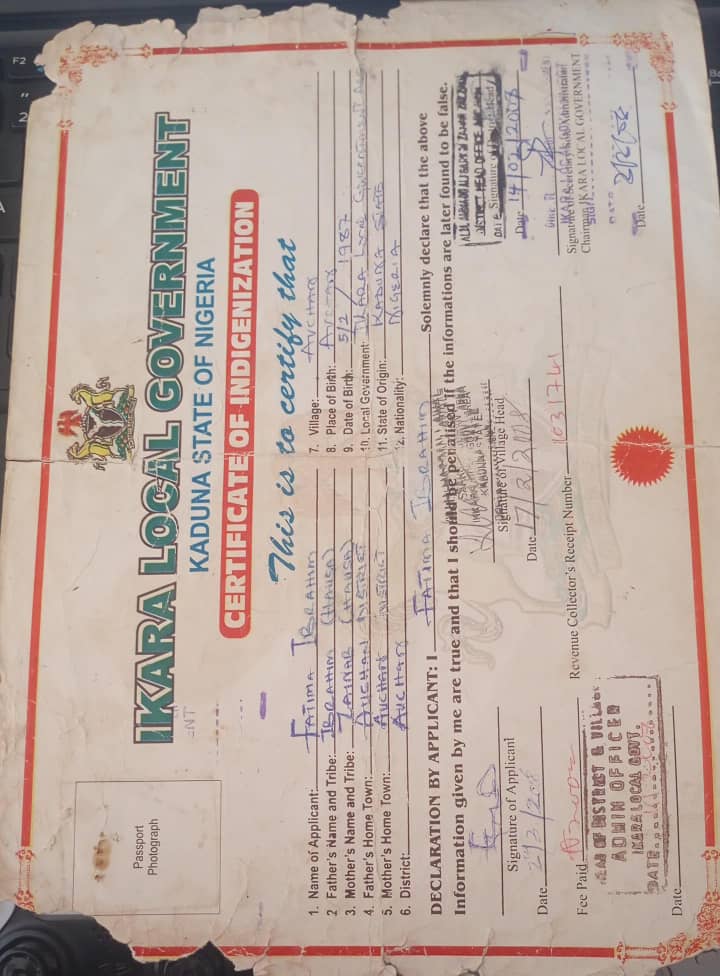 IKARA LOCAL GOVERNMENT
KADUNA STATE OF NIGERIA
CERTIFICATE OF INDIGENIZATION
This is to certify that
Passport
Photograph
1. Name of Applicant: FATIMA IBRAHIM
2 Father's Name and Tribe: IBRAHIM (HAUSA)
3. Mother's Name and Tribe: ZAINAB (HAUSA)
4. Father's Home Town: AUCHAN DISTRICT
5. Mother's Home Town: AUCHAN DISTRICT
6. District: AUCHAN
7. Village: AUCHAN
8. Place of Birth: AUCHAN
9. Date of Birth: 5/2/1987
10. Local Government: IKARA Local Government
11. State of Origin: KADUNA STATE
12. Nationality: NIGERIA
DECLARATION BY APPLICANT: I FATIMA IBRAHIM Solemnly declare that the above
Information given by me are true and that I should be penalised if the informations are later found to be false.
Signature of Applicant
Date
Signature of Village Head
Date
DISTRICT HEAD OFFICE
Date 14/02/2008
Fee Paid
Revenue Collector's Receipt Number
Chairman IKARA LOCAL GOVERNMENT
Date
HEAD OF DISTRICT & VILLAGE
ADMIN OFFICER
IKARA LOCAL GOVT.
DATE
Date
F2
2